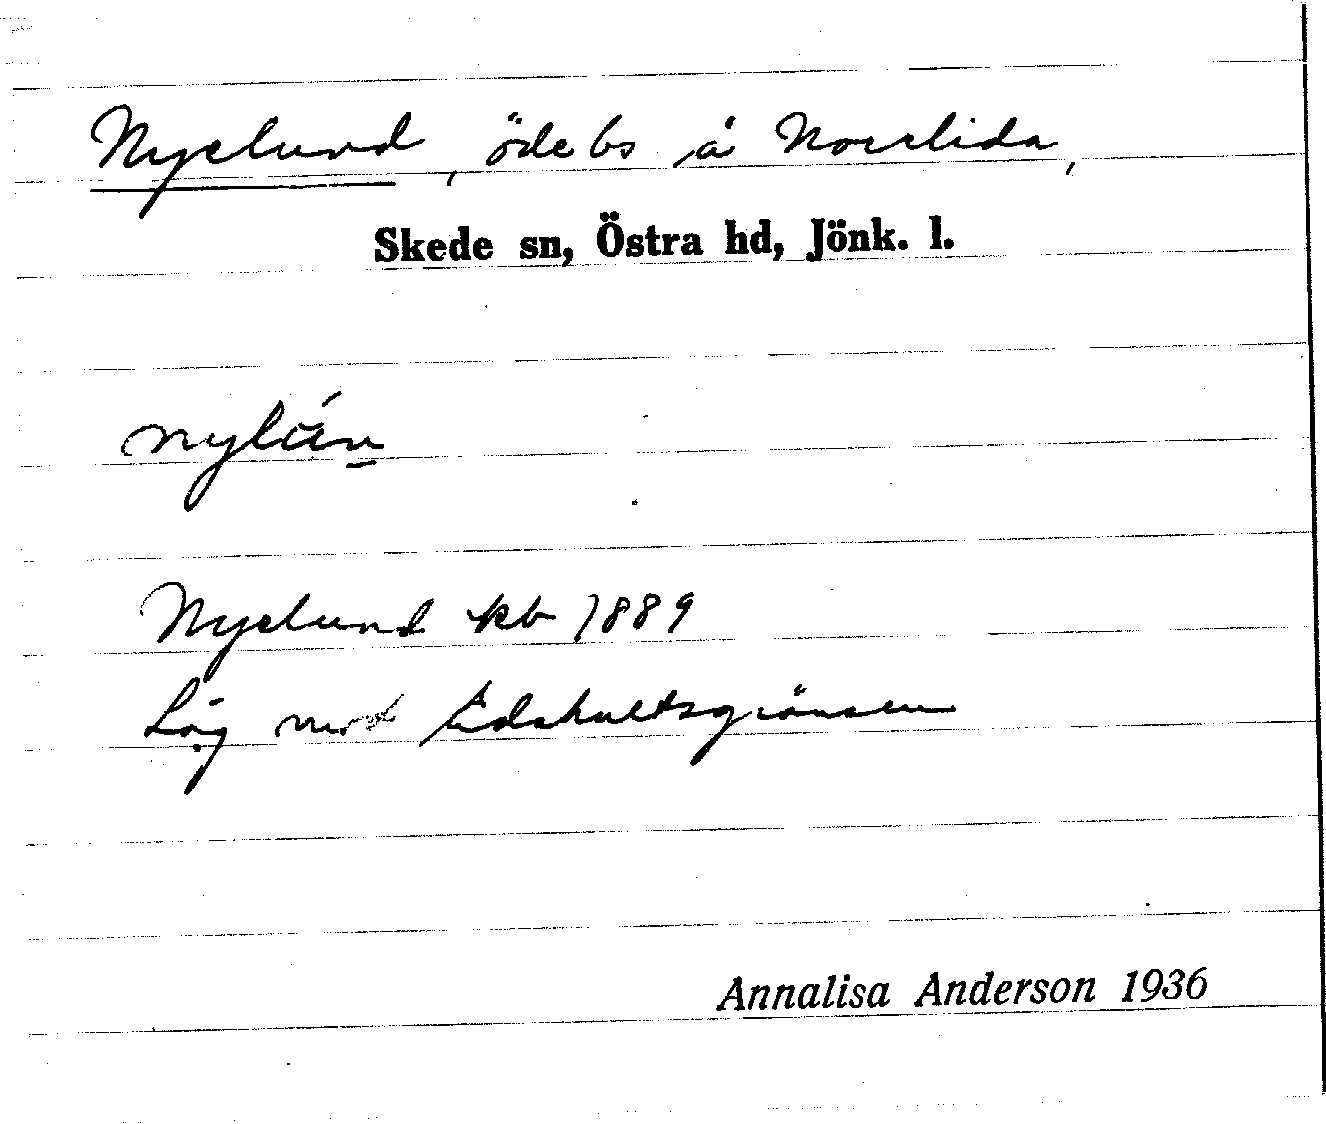 Nyelund, öde bs å Norrlida,
Skede sn, Östra hd, Jönk. l.
Nyelund kb 1889
Låg mot Edshultsgränsen
Annalisa Anderson 1936